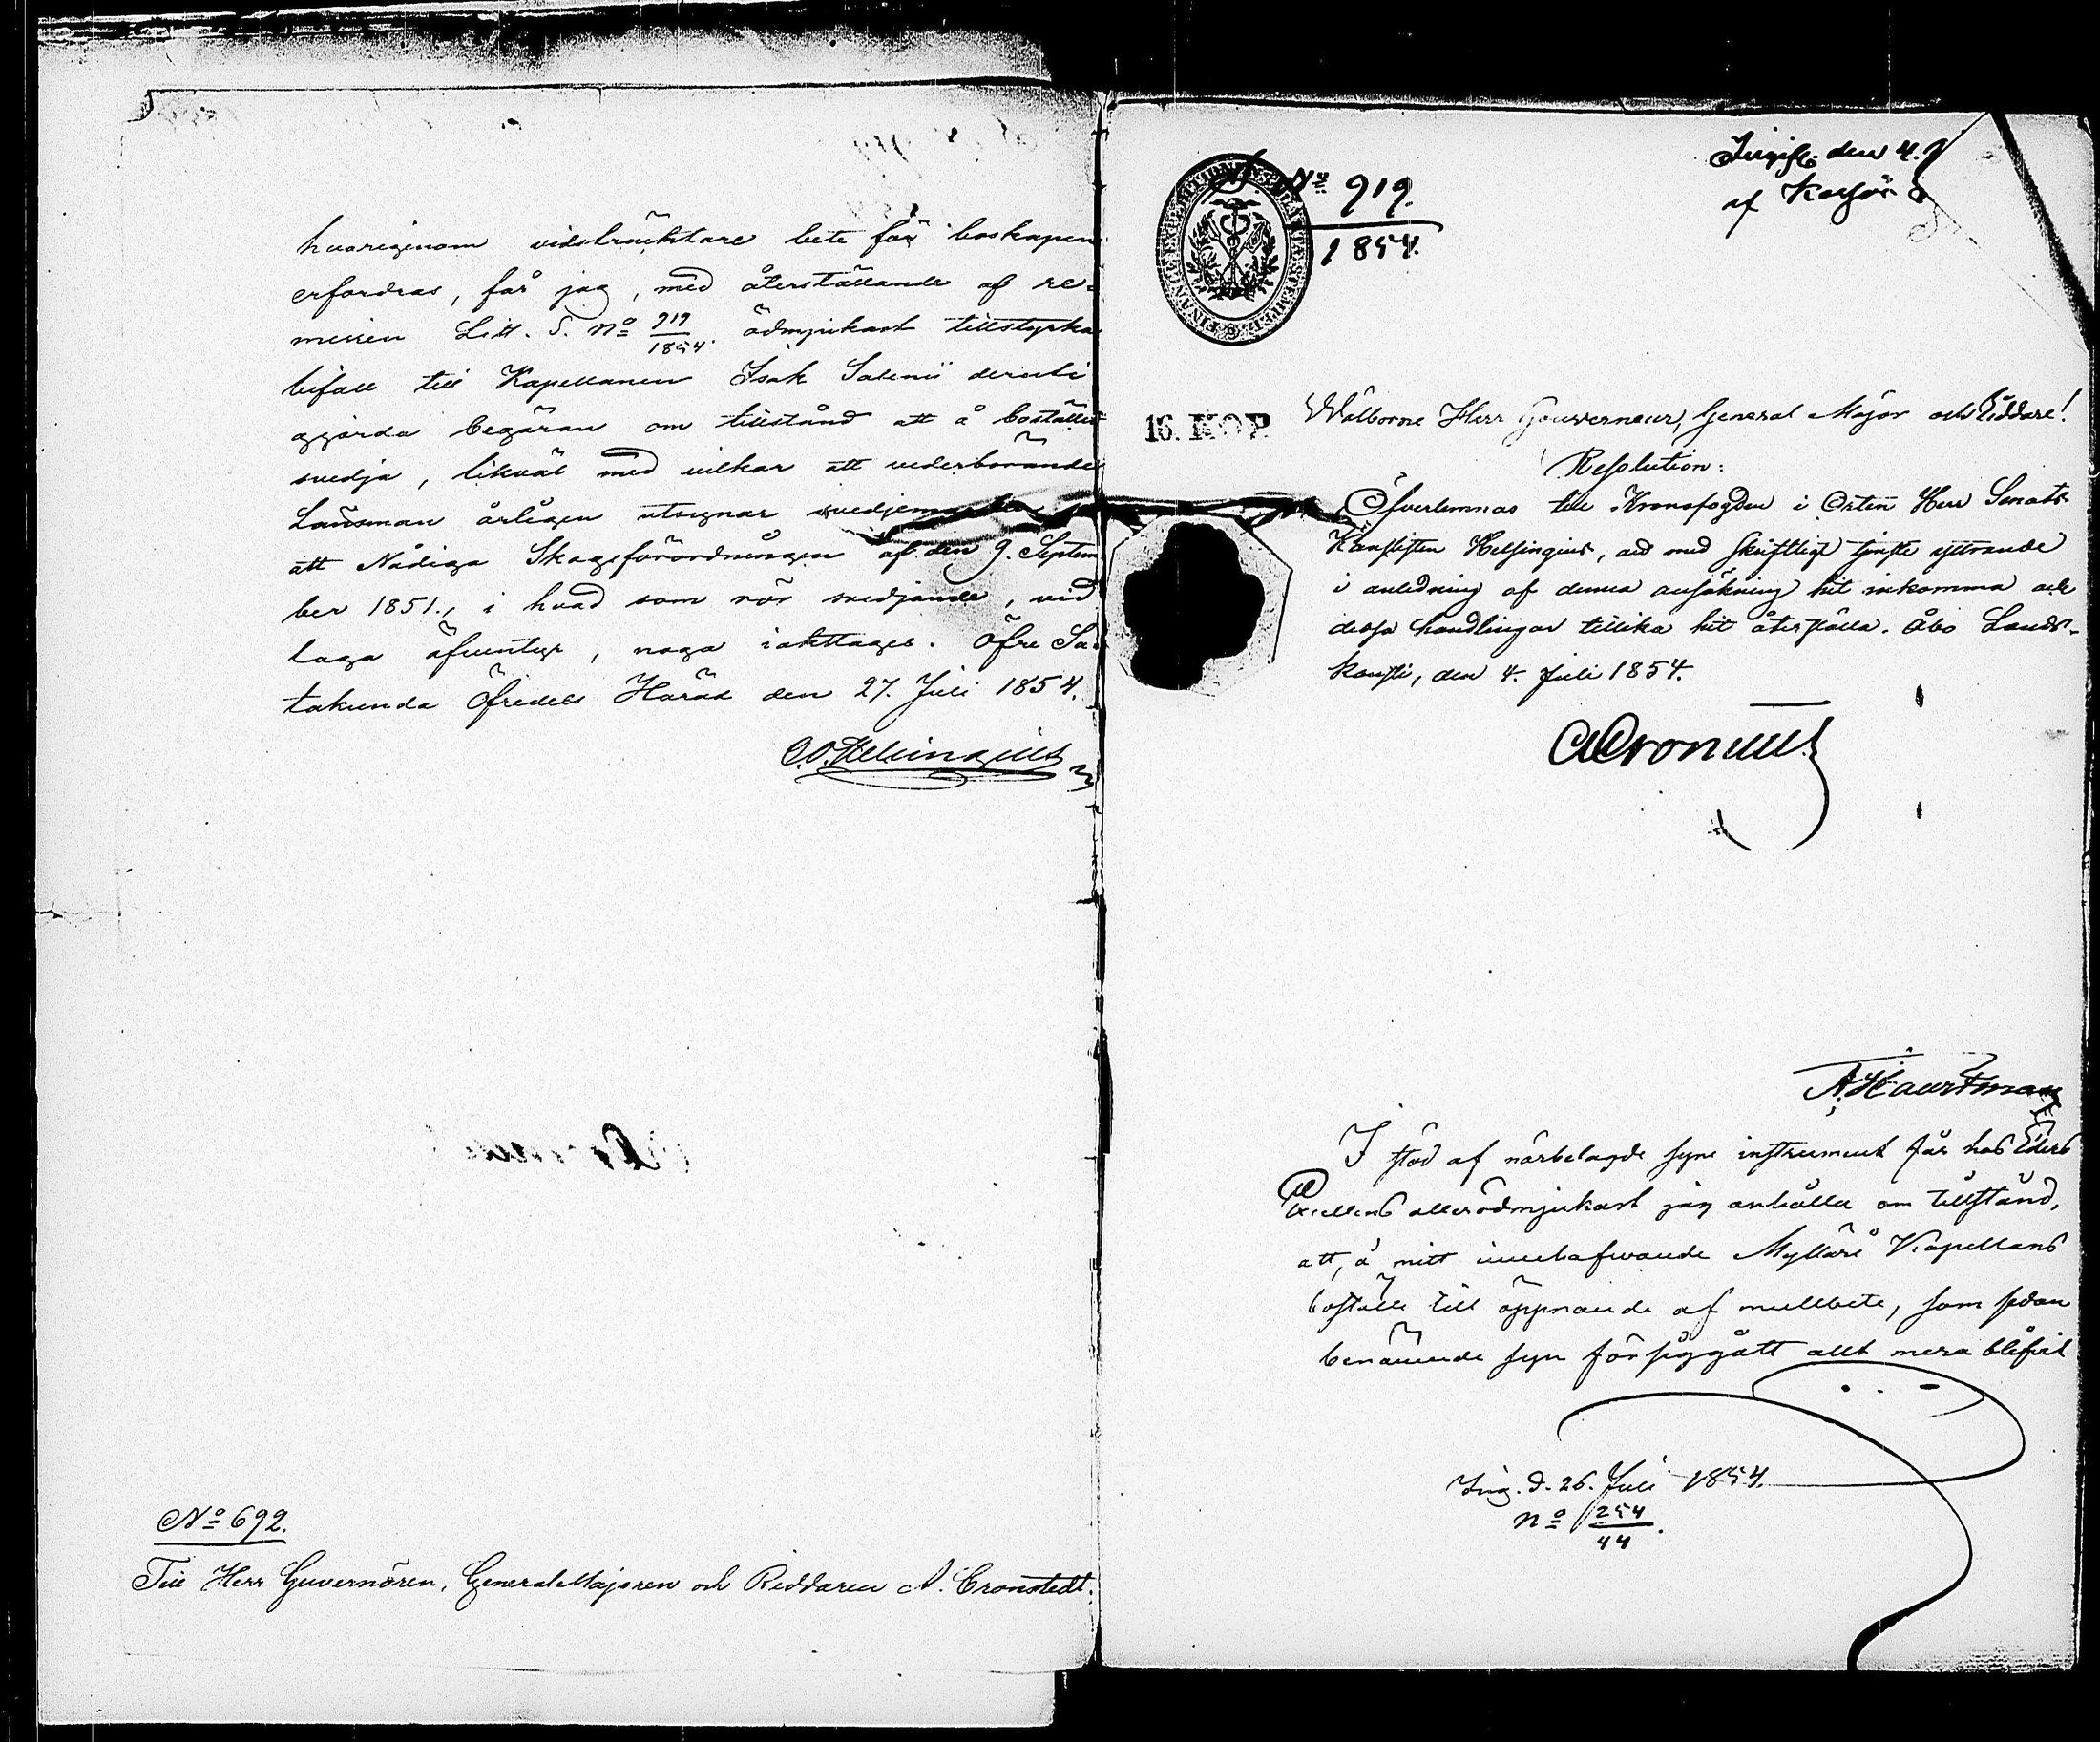 hvarigenom vidsträcktare bete för boskapen
erfordras, får jag, med återställande af re-
missen Litt. S. No 919/1854. ödmjukast tillstyrka
bifall till Kapellanen Isak Salenii deruti
gjorda begäran om tillstånd att å bostället
svedja, likväl med vilkor att vederbörande
Länsman årligen utsynar svedjemarken
att Nådiga Skogsförordningen af den 9. Septem-
ber 1851., i hvad som rör svedjande, vid
laga äfventyr, noga iakttages. Öfre Sa-
takunda Öfredels Härad den 27. Juli 1854.
C. O. Helsingius
No 692.
Till Herr Guvernören, GeneralMajoren och Riddaren A. Cronstedt.
Ingifv. den 4.
af
S No 919.
1854.
16. KOP.
Wälborne Herr Gouverneur, General Major och Riddare!
Resolution:
Öfverlemnas till Kronofogden i Orten Herr Senats-
Kanslisten Helsingius, att med skriftligt tjenste yttrande
i anledning af denna ansökning hit inkomma och
dessa handlingar tillika hit återställa. Åbo Lands-
kansli, den 4. Juli 1854.
ACronstedt
I stöd af närbelagde syne instrument får hos Eders
Excellens allerödmjukast jag anhålla om tillstånd,
att, å mitt innehafwande Mylläri Kapellans
boställe till öppnande af mullbete, som sedan
benämnde syn försiggått allt mera blifvit
Ing. d. 26. Juli 1854.
No 254
44